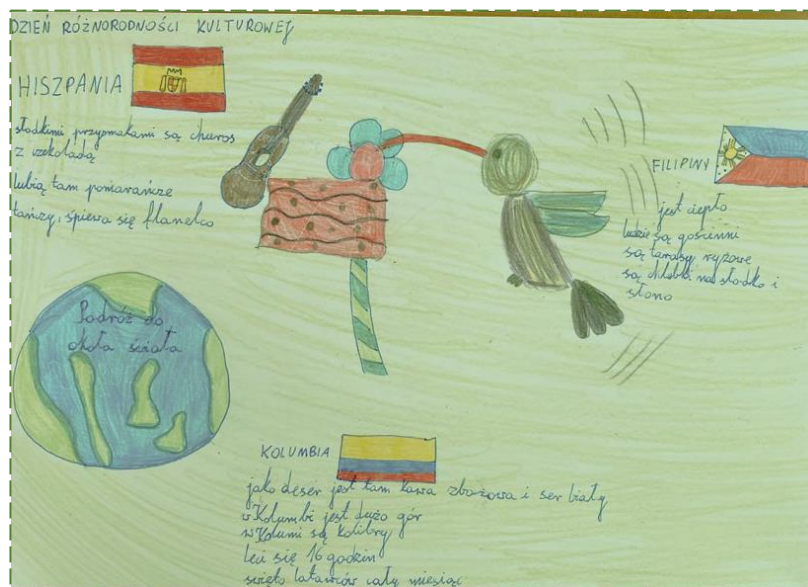 DZIEŃ RÓŻNORODNOŚCI KULTUROWEJ
HISZPANIA
słodkimi przysmakami są churos
z czekoladą
lubią tam pomarańcze
tańczy, śpiewa się flanelco
FILIPINY
jest ciepło
ludzie są gościnni
są tarasy ryżowe
są chlebki na słodko i
słono
Podróż do
okoła świata
KOLUMBIA
jako deser jest tam kawa zbożowa i ser biały
w Kolumbi jest dużo gór
w Kolumi są kolibry
leci się 16 godzin
święto latawców cały miesiąc